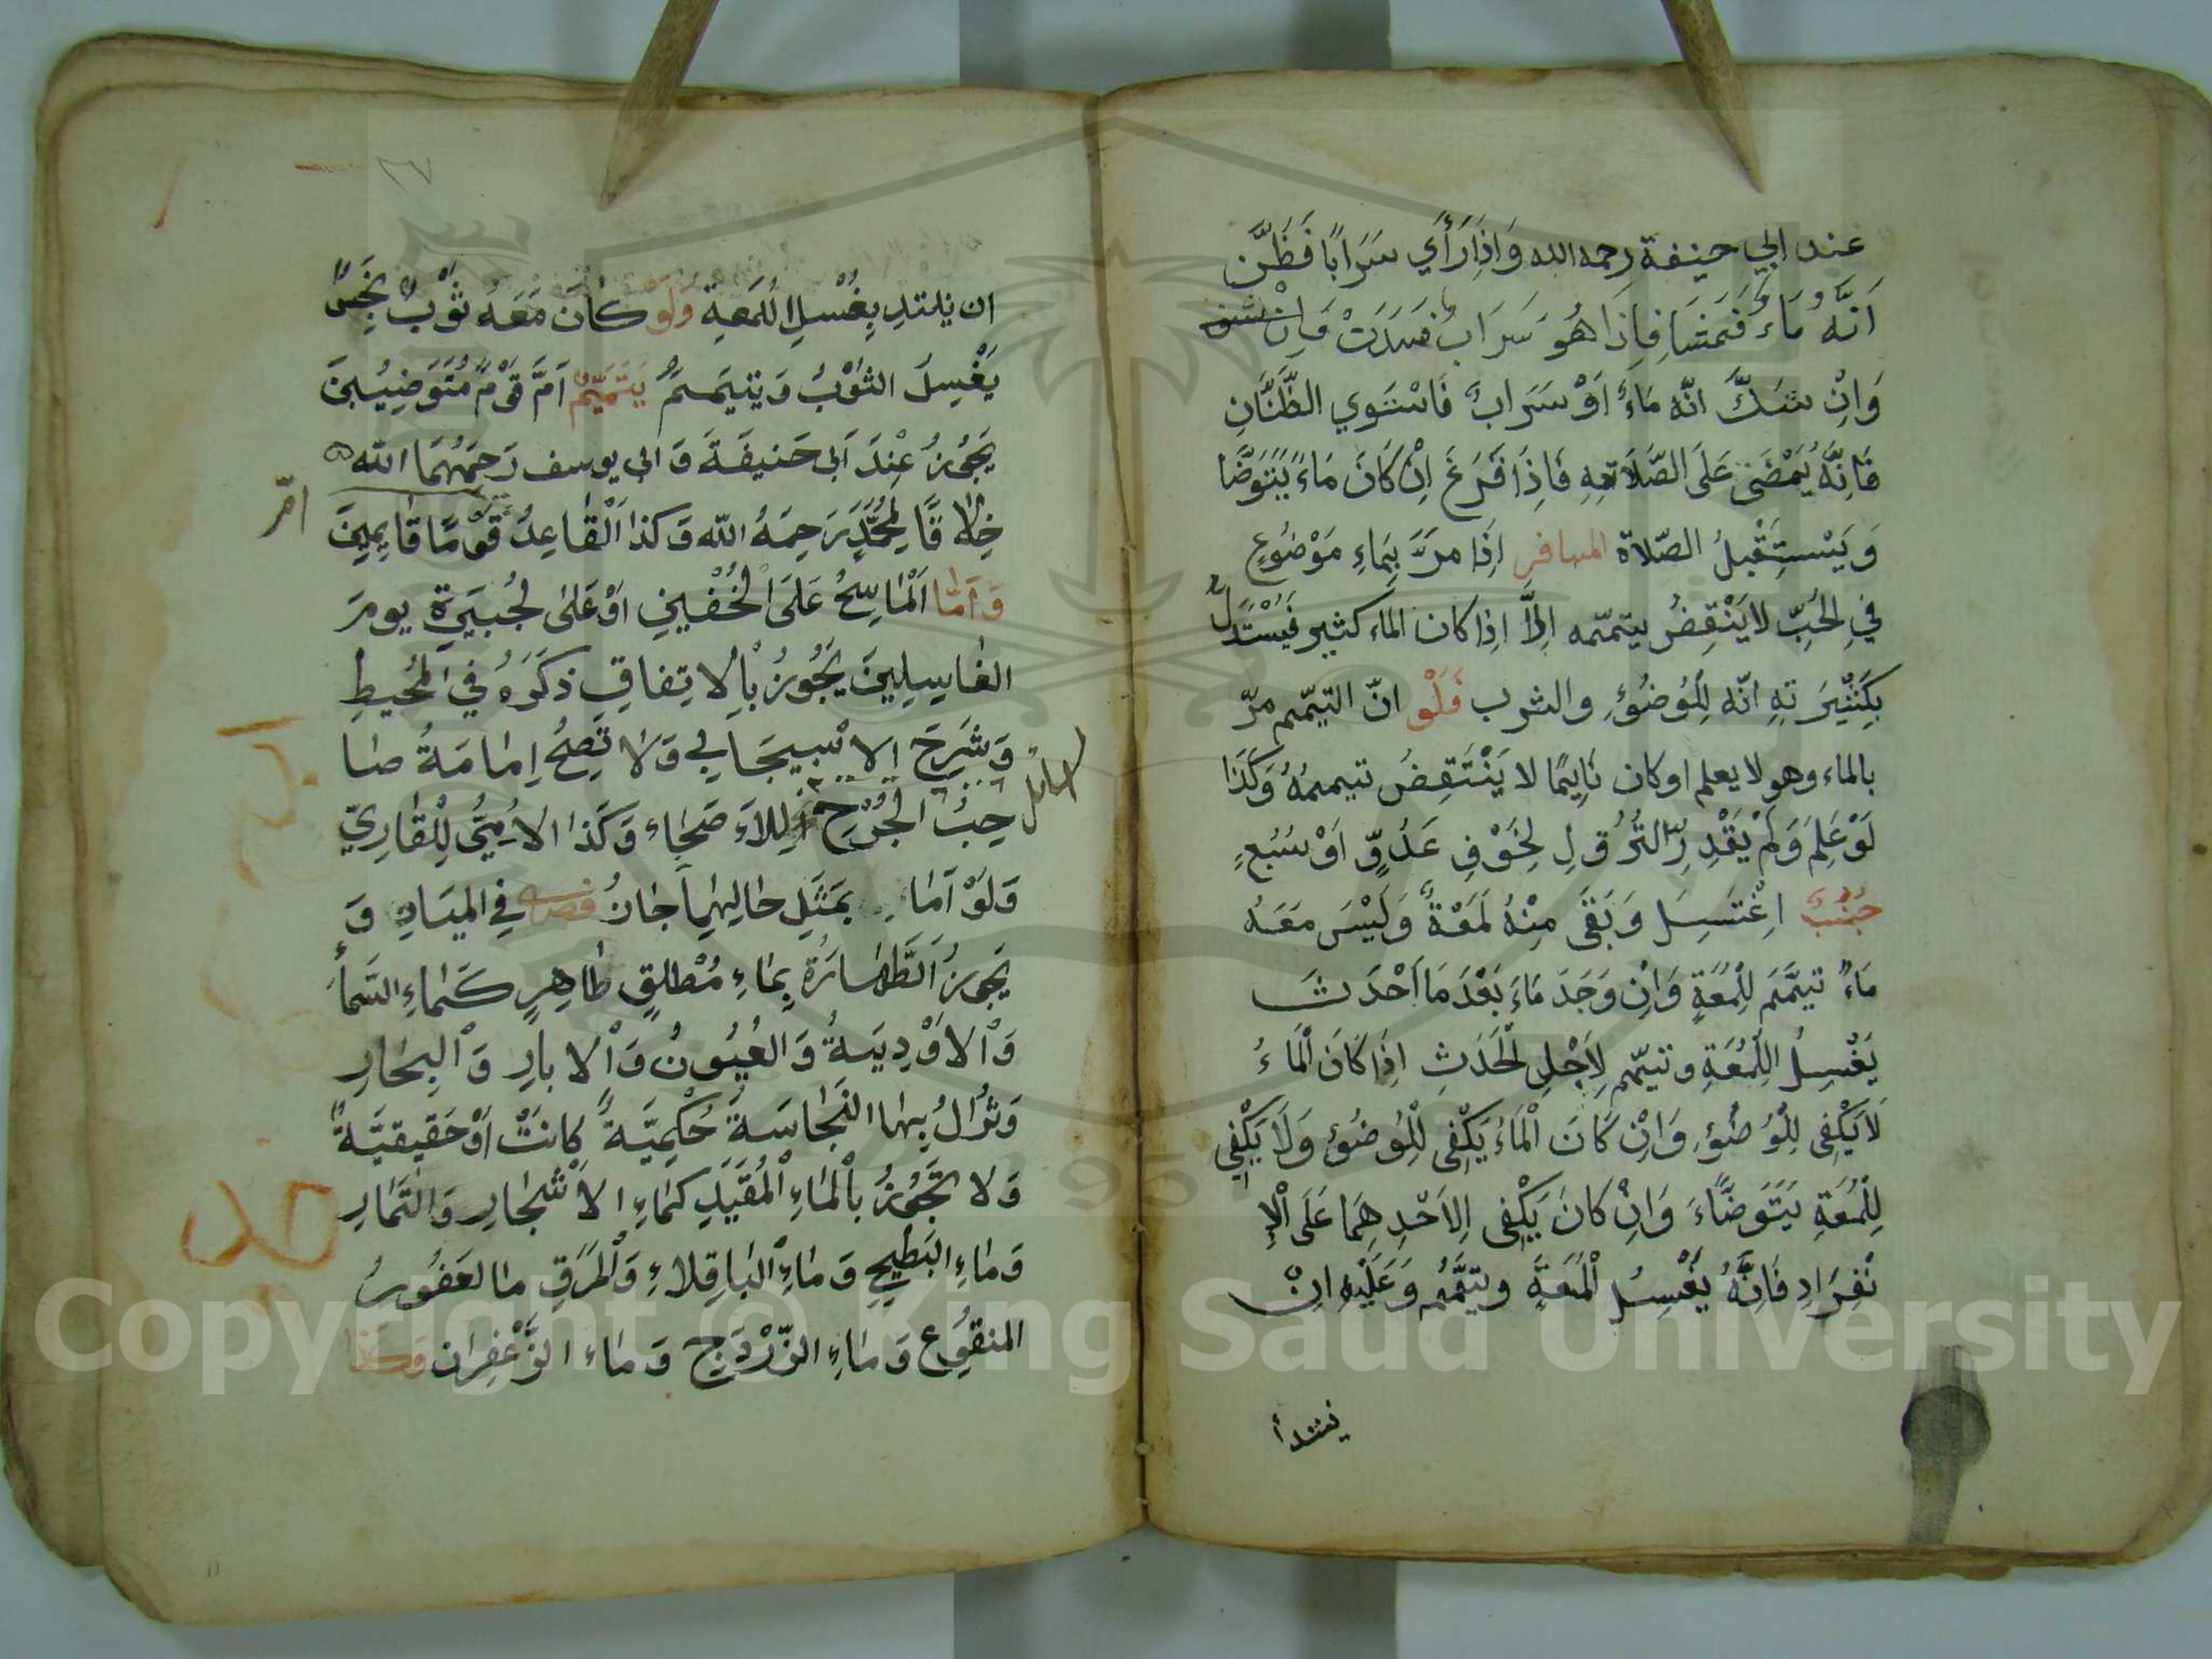 عند ابي حنيفة رحمه الله وَاِذَا رَأَي سَرَابًا فَظَنَّ
اَنَّهُ مَاءٌ فَمَشَا فَاِذَا هُوَ سَرَابٌ فَسَدَتْ وَاِنْ
وَاِنْ شَكَّ انّه مَاءٌ اَوْ سَرَابٌ فَاسْتَوي الظَّنَّانِ
فَاِنَّهُ يُمْضَى عَلَى الصَّلَاتهِ فَاِذَا فَرَغَ اِنْ كَانَ مَاءً يَتَوَضَّا
وَيَسْتِقْبِلُ الصّلاة المسافر اِذَا مرَّ بِمَاءِ مَوْضُوعٍ
فِي الحُبِّ لا يَنْقِضُ بيتممّه اِلَّا اذا كان الماء كثير فَيُسْتَدَلُّ
بِكَثْيرَتهِ انّه لِلْوُضُؤِ والشرب وَلَوْ انّ التيّمم مرّ
بالماء وهو لا يعلم او كان نَايِمًا لا يَنْتَقِضُ تيممهُ وَكَذَا
لَوْ عَلِمَ وَلَمْ يَقْدِرِ النُّزُولِ لِخَوْفِ عَدُوٍّ اَوْ سَبُعٍ
جُنُبٌ اغْتَسِلَ وَبَقَى مِنْهُ لَمْعَةٌ وَلَيْسَ مَعَهُ
مَاءٌ تيمَّمَ لِلُّمْعَةِ وَاِنْ وَجَدَ مَاءً بَعْدَ مَا اَحْدَثَ
يَغْسِلُ اللُّمْعَةِ وتيمّم لِاَجْلِ الْحَدَثِ اِذَا كَانَ الْمَاءُ
لَا يَكْفِى لِلْوُضُؤِ وَاِنْ كَانَ الْمَاءُ يَكْفِى لِلْوُضُؤِ وَلَا يَكْفِي
لِلُّمْعَةِ يَتَوَضَّاءَ وَاِنْ كَانَ يَكْفِى لِاَحْدِهِمَا عَلَى الْاِ
نْفِرَادِ فَاِنَّهُ يَغْسِلُ الْلُمَعَةَ ويتيَمَّمُ وَعَلَيْهِ اِنْ
يبتدأ
ان يبتدِ بِغُسْلِ اللُمَعِةِ وَلَوْ كَانَ مَعَهُ ثَوْبٌ نَجِسٌ
يَغْسِلَ الثَوْبُ وَيتيَممُ يَتَمَيَّمٌ اَمَّ قَوْمٌ مُتَوَضِيُينَ
يَجُوزُ عِنْدَ اَبى حَنيفَةَ وَابى يوسف رَحمَهُمَا الله
خِلَافًا لِمُحَمَّدٍ رَحِمَهُ الله وَكذا اَلْقَاعِدُ قَوْمًا قَايِمِينَ
امّ
وَاَمَّا اَلْمَاسِحُ عَلَى الخُفْينِ اَوْ عَلَى لجُبَيرَةِ يومَ
الغَاسِلِينَ يَجُوزُ بِالْاتِفَاقِ ذكَرَهُ فِي المُحيطِ
وَشَرِحَ الاسْبيجَابي وَلَا تَصِحُّ اِمَامَةُ صَا
حِبُ الجُرْحِ لِلاَصَحَاء وَكَذا الاُمِيُّ لِلْقَارِيّ
وَلَوْ اَمَا بمَثَلِ حَالِهِمَا جَازَ فصل فِي المِيَادِ وَ
يَجوزُ اَلطَّهَارَةُ بِمَاءِ مُطْلقٍ طَاهِرٍ كَمَاءِ السَّمَاءِ
وَالْاَوْدِيَةُ وَالعُيُونُ وَالْابارِ وَالْبِحَارِ
وَتُزَالُ بِهَا النَّجَاسَةُ حُكْمِيَّةً كَانَتْ اَوْ حَقيقيَّةً
وَلا تَجُوزُ بالْمَاءِ الْمُقَيَّدِ كَمَاءِ الاَشْجَارِ وَالثَّمَارِ
وَمَاءِ البَطِيحِ وَمَاءِ الْبَاقِلَاءِ وَالْمَرَقِ مَا لعَفُورُ
المنقُوع وَمَاءِ الزّرْدَجِ وَمَاء الزَّعْفِرَان وكذا